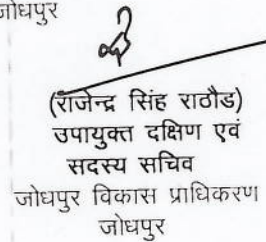 जोधपुर
(राजेन्द्र सिंह राठौड)
उपायुक्त दक्षिण एवं
सदस्य सचिव
जोधपुर विकास प्राधिकरण
जोधपुर